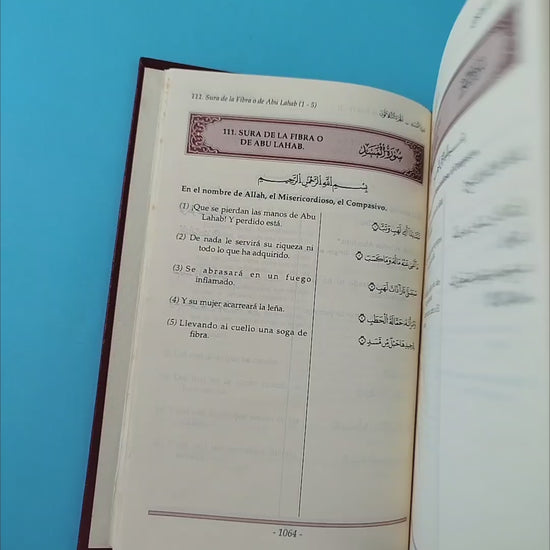 111. Sura de la Fibra o de Abu Lahab (1 - 5)
111. SURA DE LA FIBRA O
DE ABU LAHAB.
سُورَةُ المَسَدِ
بِسْمِ اللَّهِ الرَّحْمَٰنِ الرَّحِيمِ
En el nombre de Allah, el Misericordioso, el Compasivo.
(1) ¡Que se pierdan las manos de Abu
Lahab! Y perdido está.
(2) De nada le servirá su riqueza ni
todo lo que ha adquirido.
(3) Se abrasará en un fuego
inflamado.
(4) Y su mujer acarreará la leña.
(5) Llevando al cuello una soga de
fibra.
تَبَّتْ يَدَا أَبِي لَهَبٍ وَتَبَّ ①
مَا أَغْنَىٰ عَنْهُ مَالُهُ وَمَا كَسَبَ ②
سَيَصْلَىٰ نَارًا ذَاتَ لَهَبٍ ③
وَامْرَأَتُهُ حَمَّالَةَ الْحَطَبِ ④
فِي جِيدِهَا حَبْلٌ مِّن مَّسَدٍ ⑤
- 1064 -